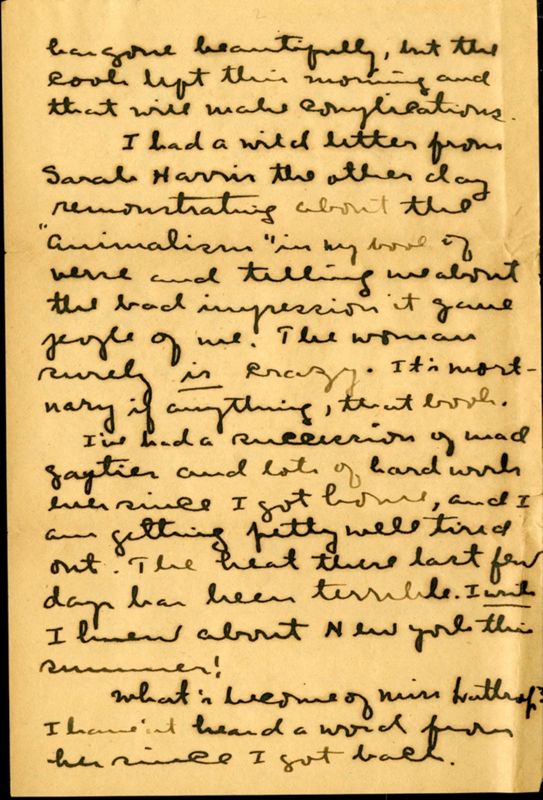 2
has gone beautifully, but the
cook left this morning and
that will make complications.
I had a wild letter from
Sarah Harris the other day
remonstrating about the
"animalism" in my book of
verse and telling me about
the bad impression it gave
people of me. The woman
surely is crazy. It's mort-
uary if anything, that book.
I've had a succession of mad
gayties and lots of hard work
ever since I got home, and I
am getting petty well tired
out. The heat these last few
days has been terrible. I wish
I knew about New York this
summer!
What's become of Miss Lathrop?
I have'nt heard a word from
her since I got back.